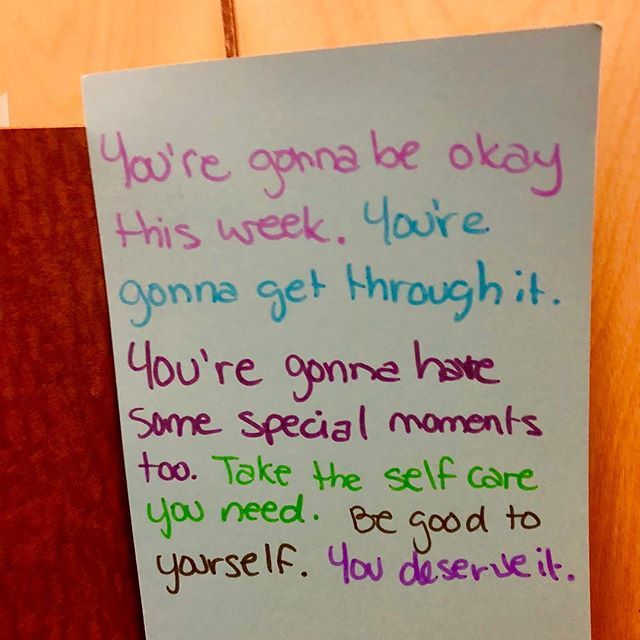 You're gonna be okay
this week. You're
gonna get through it.
You're gonna have
some special moments
too. Take the self care
you need. Be good to
yourself. You deserve it.